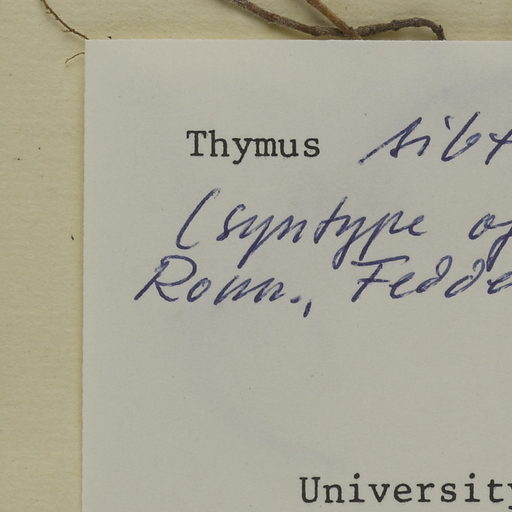 Thymus sibt
(syntype of
Ronn., Fedde
University